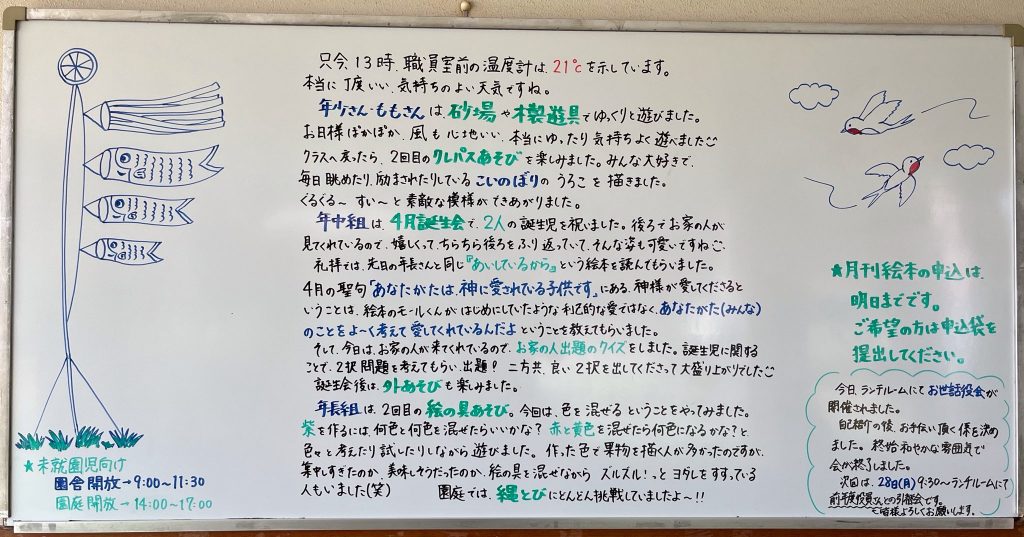 只今、13時、職員室前の温度計は、21℃を示しています。
本当に丁度いい、気持ちのよい天気ですね。
年少さん・ももさんは、砂場や木製遊具でゆっくりと遊びました。
お日様ぽかぽか、風も心地いい、本当にゆったり気持ちよく遊べました☺
クラスへ戻ったら、2回目のクレパスあそびを楽しみました。みんな大好きで、
毎日眺めたり、励まされたりしているこいのぼりのうろこを描きました。
ぐるぐる〜 すい〜と素敵な模様ができあがりました。
年中組は、4月誕生会で、2人の誕生児を祝いました。後ろでお家の人が
見てくれているので、嬉しくって、ちらちら後ろをふり返っていて、そんな姿も可愛いですね☺
礼拝では、先日の年長さんと同じ『あいしているから』という絵本を読んてもらいました。
4月の聖句「あなたがたは、神に愛されている子供です」にある、神様が愛してくださると
いうことは、絵本のモールくんがはじめにしていたような利己的な愛ではなく、あなたがた(みんな)
のことをよ〜く考えて愛してくれているんだよということを教えてもらいました。
そして、今日は、お家の人が来てくれているので、お家の人出題のクイズをしました。誕生児に関する
ことで、2択問題を考えてもらい、出題！ 二方共、良い2択を出してくださって大盛り上がりでした☺
誕生会後は、外あそびも楽しみました。
年長組は、2回目の絵の具あそび。今回は、色を混ぜるということをやってみました。
紫を作るには、何色と何色を混ぜたらいいかな？ 赤と黄色を混ぜたら何色になるかな？と
色々と考えたり試したりしながら遊びました。作った色で果物を描く人が多かったのですが、
集中しすぎたのか、美味しそうだったのか、絵の具を混ぜながらズルズル！っとヨダレをすすっている
人もいました(笑) 園庭では、縄とびにどんどん挑戦していましたよ〜!!
★未就園児向け
園舎開放→9:00〜11:30
園庭開放→14:00〜17:00
★月刊絵本の申込は、
明日までです。
ご希望の方は申込袋を
提出してください。
今日、ランチルームにてお世話役会が
開催されました。
自己紹介の後、お手伝い頂く係を決め
ました。終始和やかな雰囲気で
会が終了しました。
次回は、28日(月)9:30〜ランチルームにて
前年度役員さんとの引継会です。
皆様よろしくお願いします。